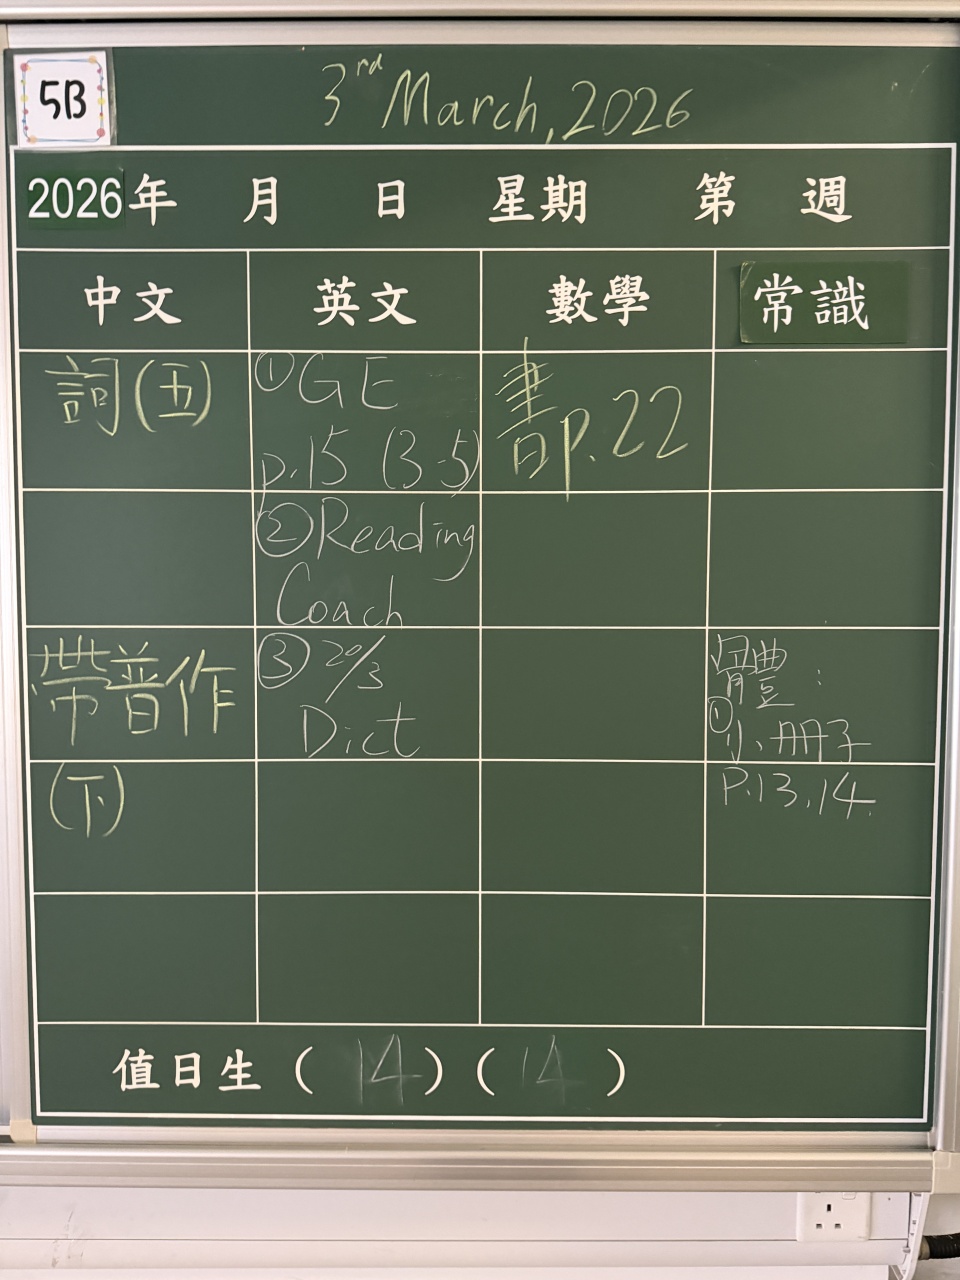 5B
3rd March, 2026
2026年 月 日 星期 第 週
中文 英文 數學 常識
詞(五)
①GE
p.15 (3-5)
書p.22
②Reading
Coach
帶普作
(下)
③ 20/3
Dict
體:
①小冊子
P.13,14.
值日生 ( 14 ) ( 14 )